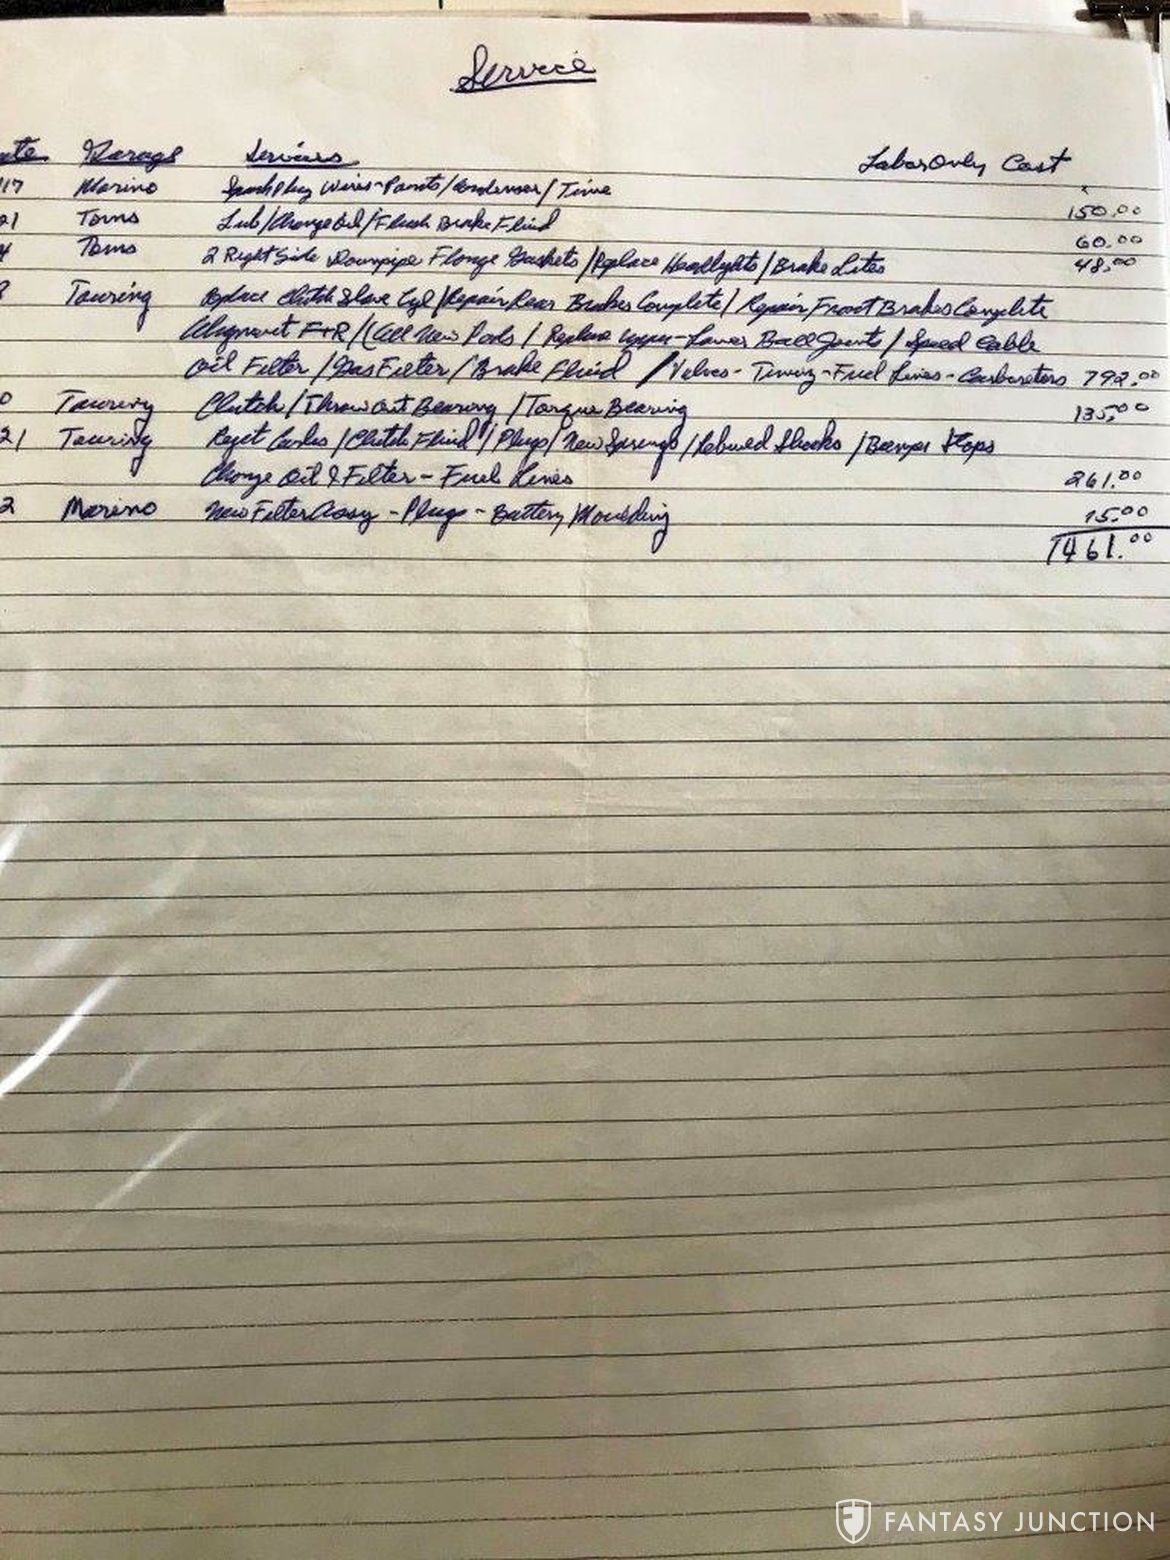 Service
ate Garage Services Labor Only Cost
17 Marino Spark Plug Wires - Points / Condenser / Time 150.00
21 Toms Lub / Change Oil / Flush Brake Fluid 60.00
4 Toms 2 Right Side Downpipe Flange Gaskets / Replace Headlights / Brake Lites 48.00
Touring Replace Clutch Slave Cyl / Repair Rear Brakes Complete / Repair Front Brakes Complete
Alignment F+R / (All New Pads / Replace Upper - Lower Ball Joints / Speed Cable
Oil Filter / Gas Filter / Brake Fluid / Valves - Timing - Fuel Lines - Carburetors 792.00
0 Touring Clutch / Throw Out Bearing / Torque Bearing 135.00
21 Touring Rejet Carbs / Clutch Fluid / Plugs / New Springs / Rebuild Shocks / Bumper Stops
Change Oil & Filter - Fuel Lines 261.00
2 Marino New Filter Assy - Plugs - Battery / Moulding 15.00
1461.00
FANTASY JUNCTION